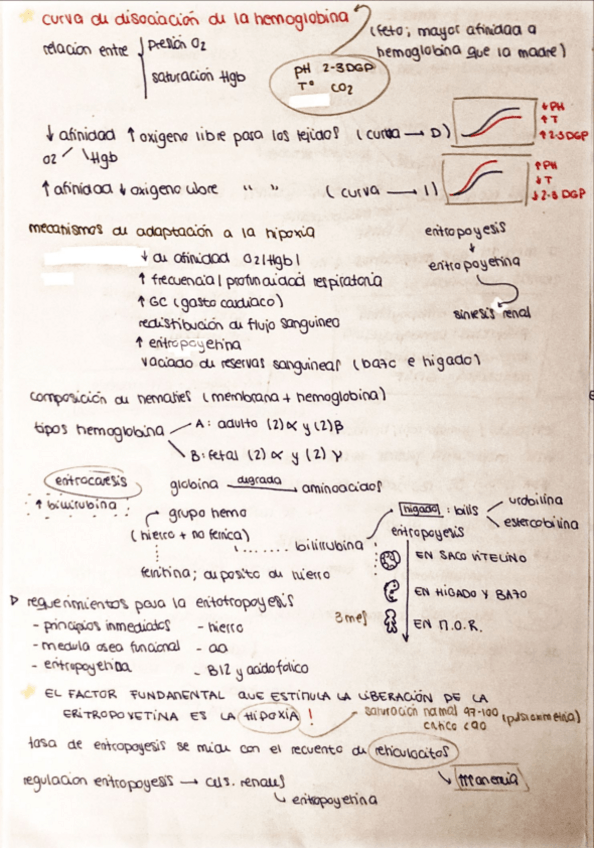 curva de disociación de la hemoglobina
(feto; mayor afinidad a
hemoglobina que la madre)
relación entre
Presión O2
saturación Hgb
pH 2-3DGP
Tº CO2
↓ afinidad ↑ oxigeno libre para los tejidos (curva → D)
O2 / Hgb
↓ PH
↑ T
↑ 2-3 DGP
↑ afinidad ↓ oxigeno libre " " (curva → I)
↑ PH
↓ T
↓ 2-3 DGP
mecanismos de adaptación a la hipoxia
↓ de afinidad O2/Hgb
↑ frecuencia/profundidad respiratoria
↑ GC (gasto cardiaco)
redistribución de flujo sanguineo
↑ eritropoyetina
vaciado de reservas sanguineas (bazo e higado)
eritropoyesis
eritropoyetina
sintesis renal
composición de hematies (membrana + hemoglobina)
tipos hemoglobina
A: adulto (2) α y (2) β
B: fetal (2) α y (2) γ
eritrocaresis
↑ bilirrubina
globina degrada → aminoacidos
grupo hemo
(hierro + no ferrica)
bilirrubina
higado: bilis
urobilina
estercobilina
ferritina; deposito de hierro
eritropoyesis
EN SACO VITELINO
EN HIGADO Y BAZO
3 mes
EN M.O.R.
requerimientos para la eritotropoyesis
- principios inmediatos - hierro
- medula osea funcional - aa
- eritropoyetina - B12 y acido folico
EL FACTOR FUNDAMENTAL QUE ESTIMULA LA LIBERACIÓN DE LA
ERITROPOYETINA ES LA HIPOXIA !
saturación normal 97-100 (pulsioximetria)
critico <90
tasa de eritropoyesis se mide con el recuento de reticulocitos
regulacion eritropoyesis → cels. renales
eritropoyetina